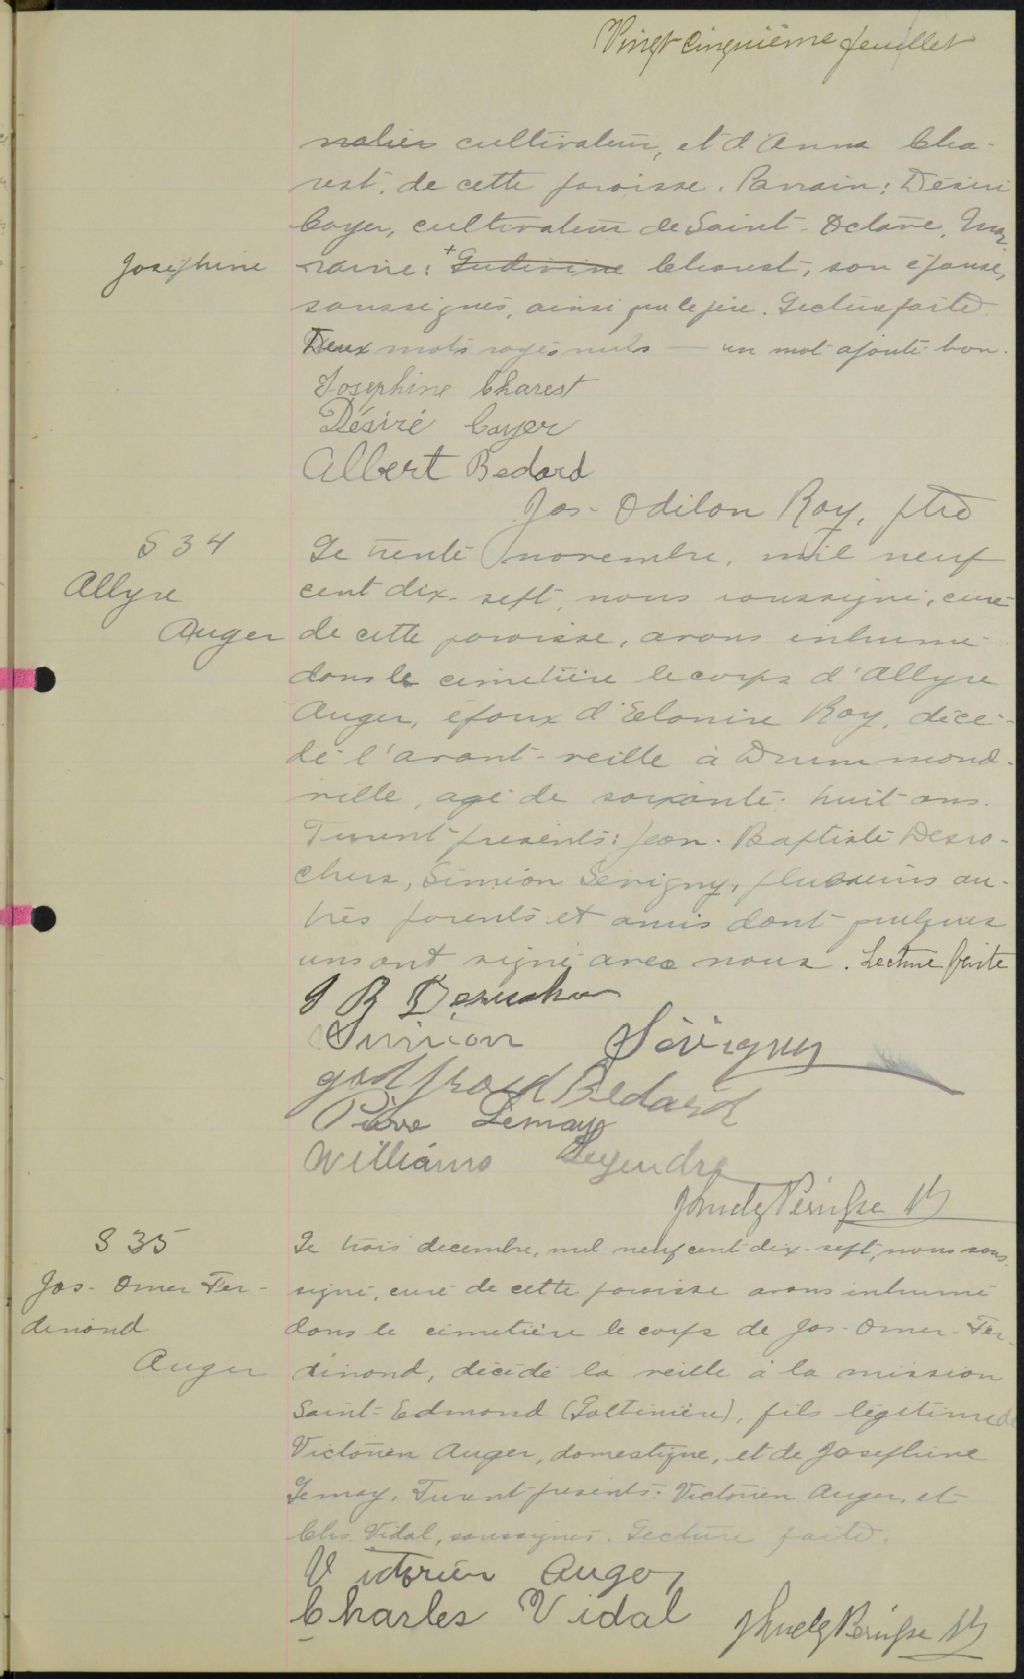 Vingt cinquième feuillet
nalier cultivateur, et d'Anna Cha-
rest, de cette paroisse. Parrain: Désiré
Coyer, cultivateur de Saint-Octave, Mar-
Josephine
raine: + Ludivine Charest, son épouse,
soussignés, ainsi que le père. Lecture faite.
Deux mots rayés nuls — un mot ajouté bon.
Josephine Charest
Désiré Coyer
Albert Bedard
Jos-Odilon Roy, ptre
S 34
Allyre
Auger
Le trente novembre, mil neuf
cent dix-sept, nous soussigné, curé
de cette paroisse, avons inhumé
dans le cimetière le corps d'Allyre
Auger, époux d'Elonire Roy, décé-
dé l'avant-veille à Drummond-
ville, agé de soixante-huit ans.
Furent présents: Jean-Baptiste Desro-
chers, Siméon Sévigny, plusieurs au-
tres parents et amis dont quelques
uns ont signé avec nous. Lecture faite
J B Desrochers
Siméon Sévigny
godfroid Bédard
Pierre Lemay
Williams Legendre
S 35
Jos-Omer Fer-
dinand
Auger
Le trois decembre, mil neuf cent dix-sept, nous sous-
signé, curé de cette paroisse avons inhumé
dans le cimetière le corps de Jos-Omer-Fer-
dinand, décédé la veille à la mission
Saint-Edmond (Lotbinière), fils légitime de
Victorien Auger, domestique, et de Josephine
Lemay. Furent présents: Victorien Auger, et
Chs Vidal, soussignés. Lecture faite.
Victorien Auger
Charles Vidal